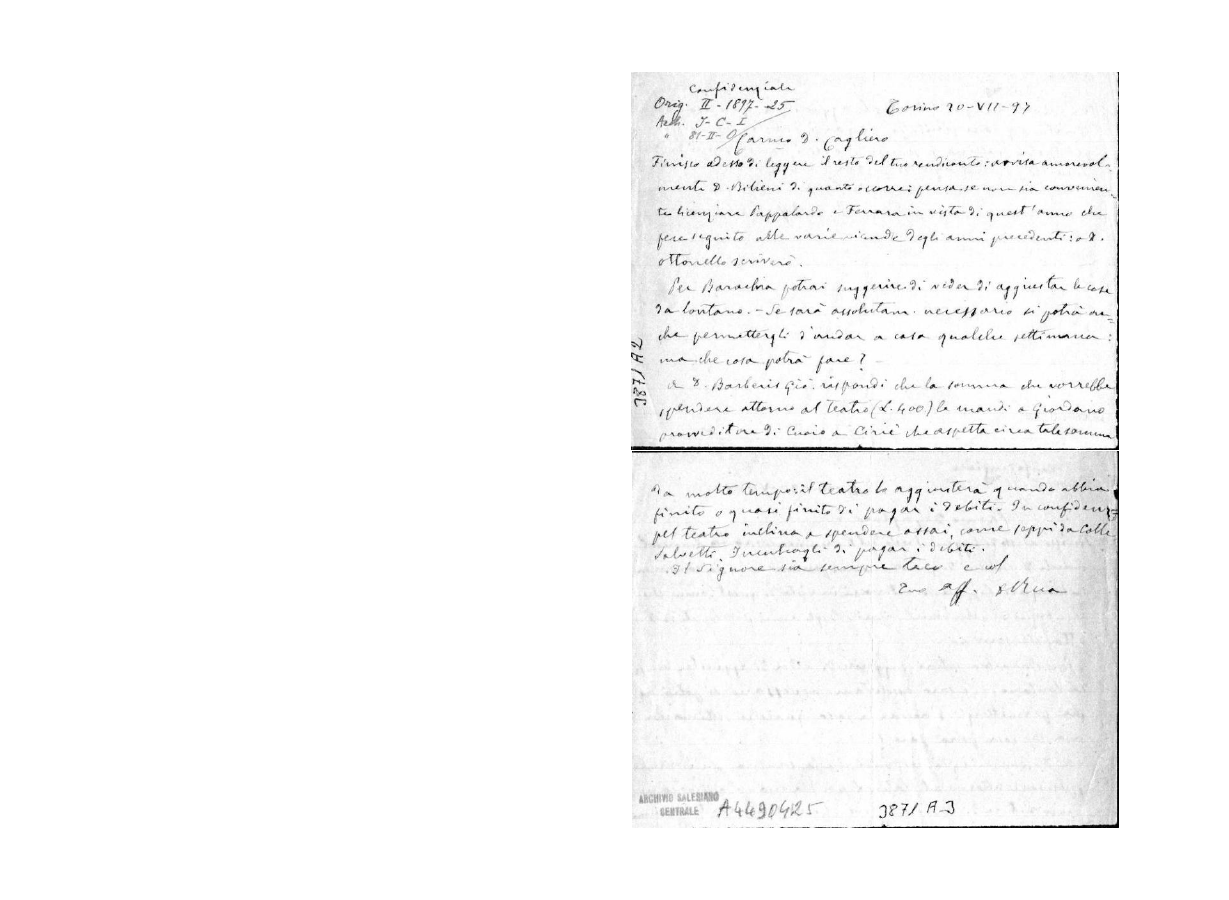 Confidenziale
Orig. II - 1897 - 25
Torino 20-VII-97
Arch. J- C- I
" 81-II-
Carmo D. Cagliero
Finisco adesso di leggere il resto del tuo rendiconto: avvisa amorevol-
mente D. Bilieni di quanto occorre: pensa se non sia convenien-
te licenziare Pappalardo e Ferrara in vista di quest'anno che
fece seguito alle varie vicende degli anni precedenti: a D.
Ottonello scriverò.
Per potrai suggerire di veder di aggiustar le cose
da lontano. - Se sarà assolutam. necessario si potrà an=
che permettergli d'andar a casa qualche settimana:
ma che cosa potrà fare? -
A D. Barberis Gio. rispondi che la somma che vorrebbe
spendere attorno al teatro (L. 400) la mandi a Giordano
provveditore di Cuoio a Ciriè che aspetta circa tale somma
3871 A2
da molto tempo: il teatro lo aggiusterà quando abbia
finito o quasi finito di pagar i debiti. In confidenz=
pel teatro inclina a spendere assai, come seppi da Colle
Salvetti. Inculcagli di pagar i debiti.
Il Signore sia sempre teco e col
Tuo aff. D Rua
ARCHIVIO SALESIANO
CENTRALE
A4490425
3871 A-3